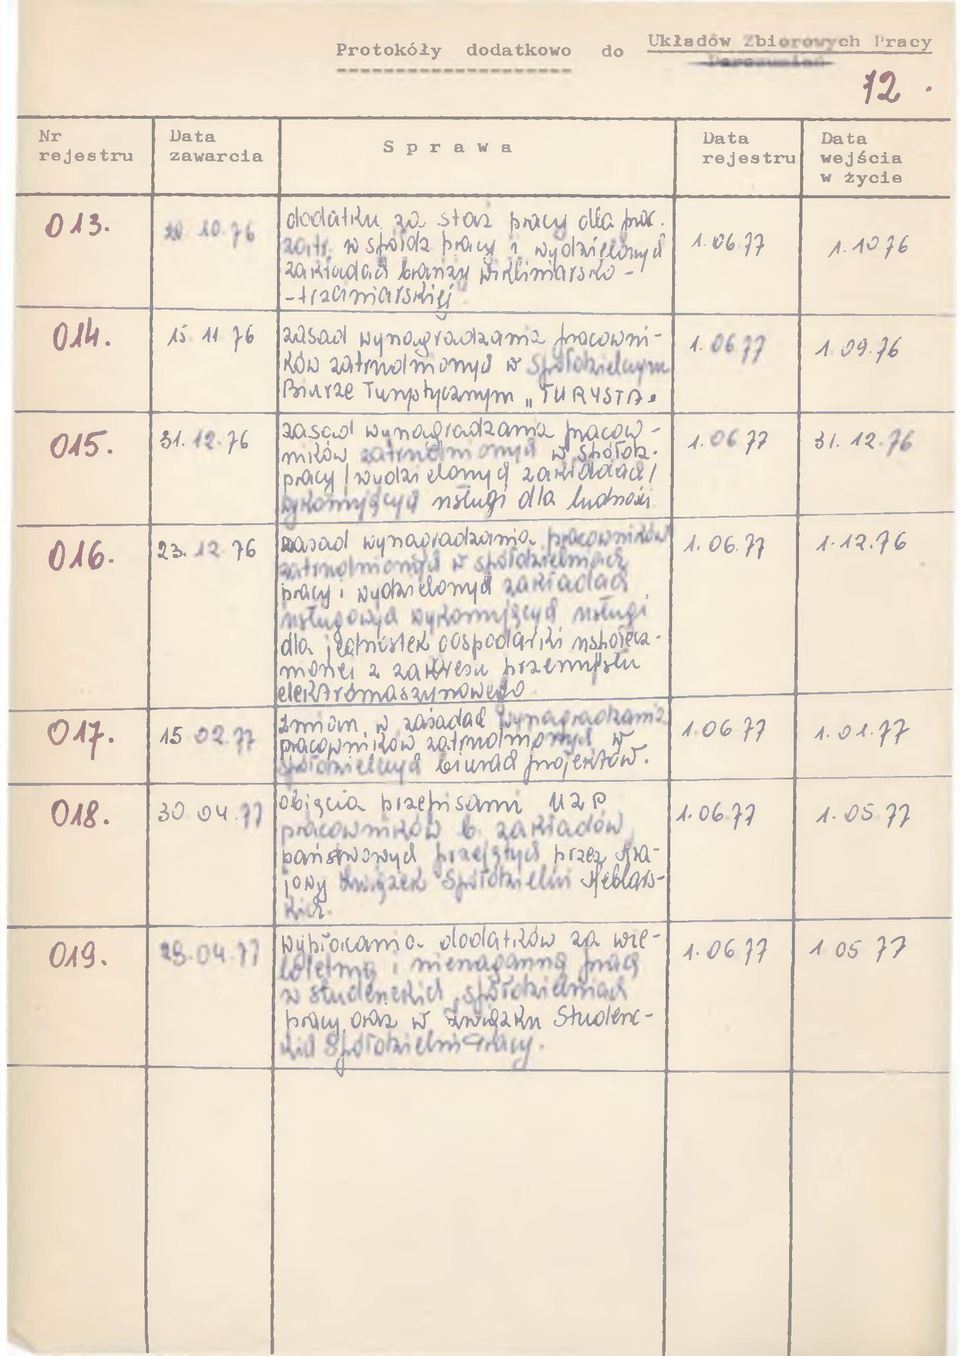 Protokóły dodatkowo do Układów Zbiorowych Pracy
Porozumień
12.
Nr rejestru
Data zawarcia
Sprawa
Data rejestru
Data wejścia w życie
013. 10.76 1.06.77 1.10 76
dodatku za staż pracy dla prac.
zatr. w spółdz pracy i wydzielonych
zakładach branży wikliniarsko -
- trzciniarskiej
014. 15 11 76 1. 06.77 1.09.76
zasad wynagradzania pracowni-
ków zatrudnionych w Spółdzielczym
Biurze Turystycznym „TURYSTA"
015. 31. 12. 76 1. 06 77 31. 12. 76
zasad wynagradzania pracow -
ników zatrudnionych w spółdz.
pracy /wydzielonych zakładach/
wykonujących usługi dla ludności
016. 23. 12. 76 1. 06. 77 1. 12. 76
zasad wynagradzania pracowników
zatrudnionych w spółdzielniach
pracy i wydzielonych zakładach
usługowych wykonujących usługi
dla jednostek gospodarki uspołecz-
nionej z zakresu przemysłu
elektromaszynowego
017. 15 02. 77 1 06 77 1. 01. 77
zmian w zasadach wynagradzania
pracowników zatrudnionych w
spółdzielczych biurach projektów.
018. 30 04. 77 1. 06 77 1. 05 77
objęcia przepisami UZP
pracowników b. zakładów
państwowych przejętych przez Kra-
jowy Związek Spółdzielni Meblars-
kich.
019. 04.77 1. 06 77 1 05 77
wypłacania dodatków za wie-
loletnią i nienaganną pracę
w studenckich spółdzielniach
pracy oraz w Związku Studenc-
kich Spółdzielni Pracy.